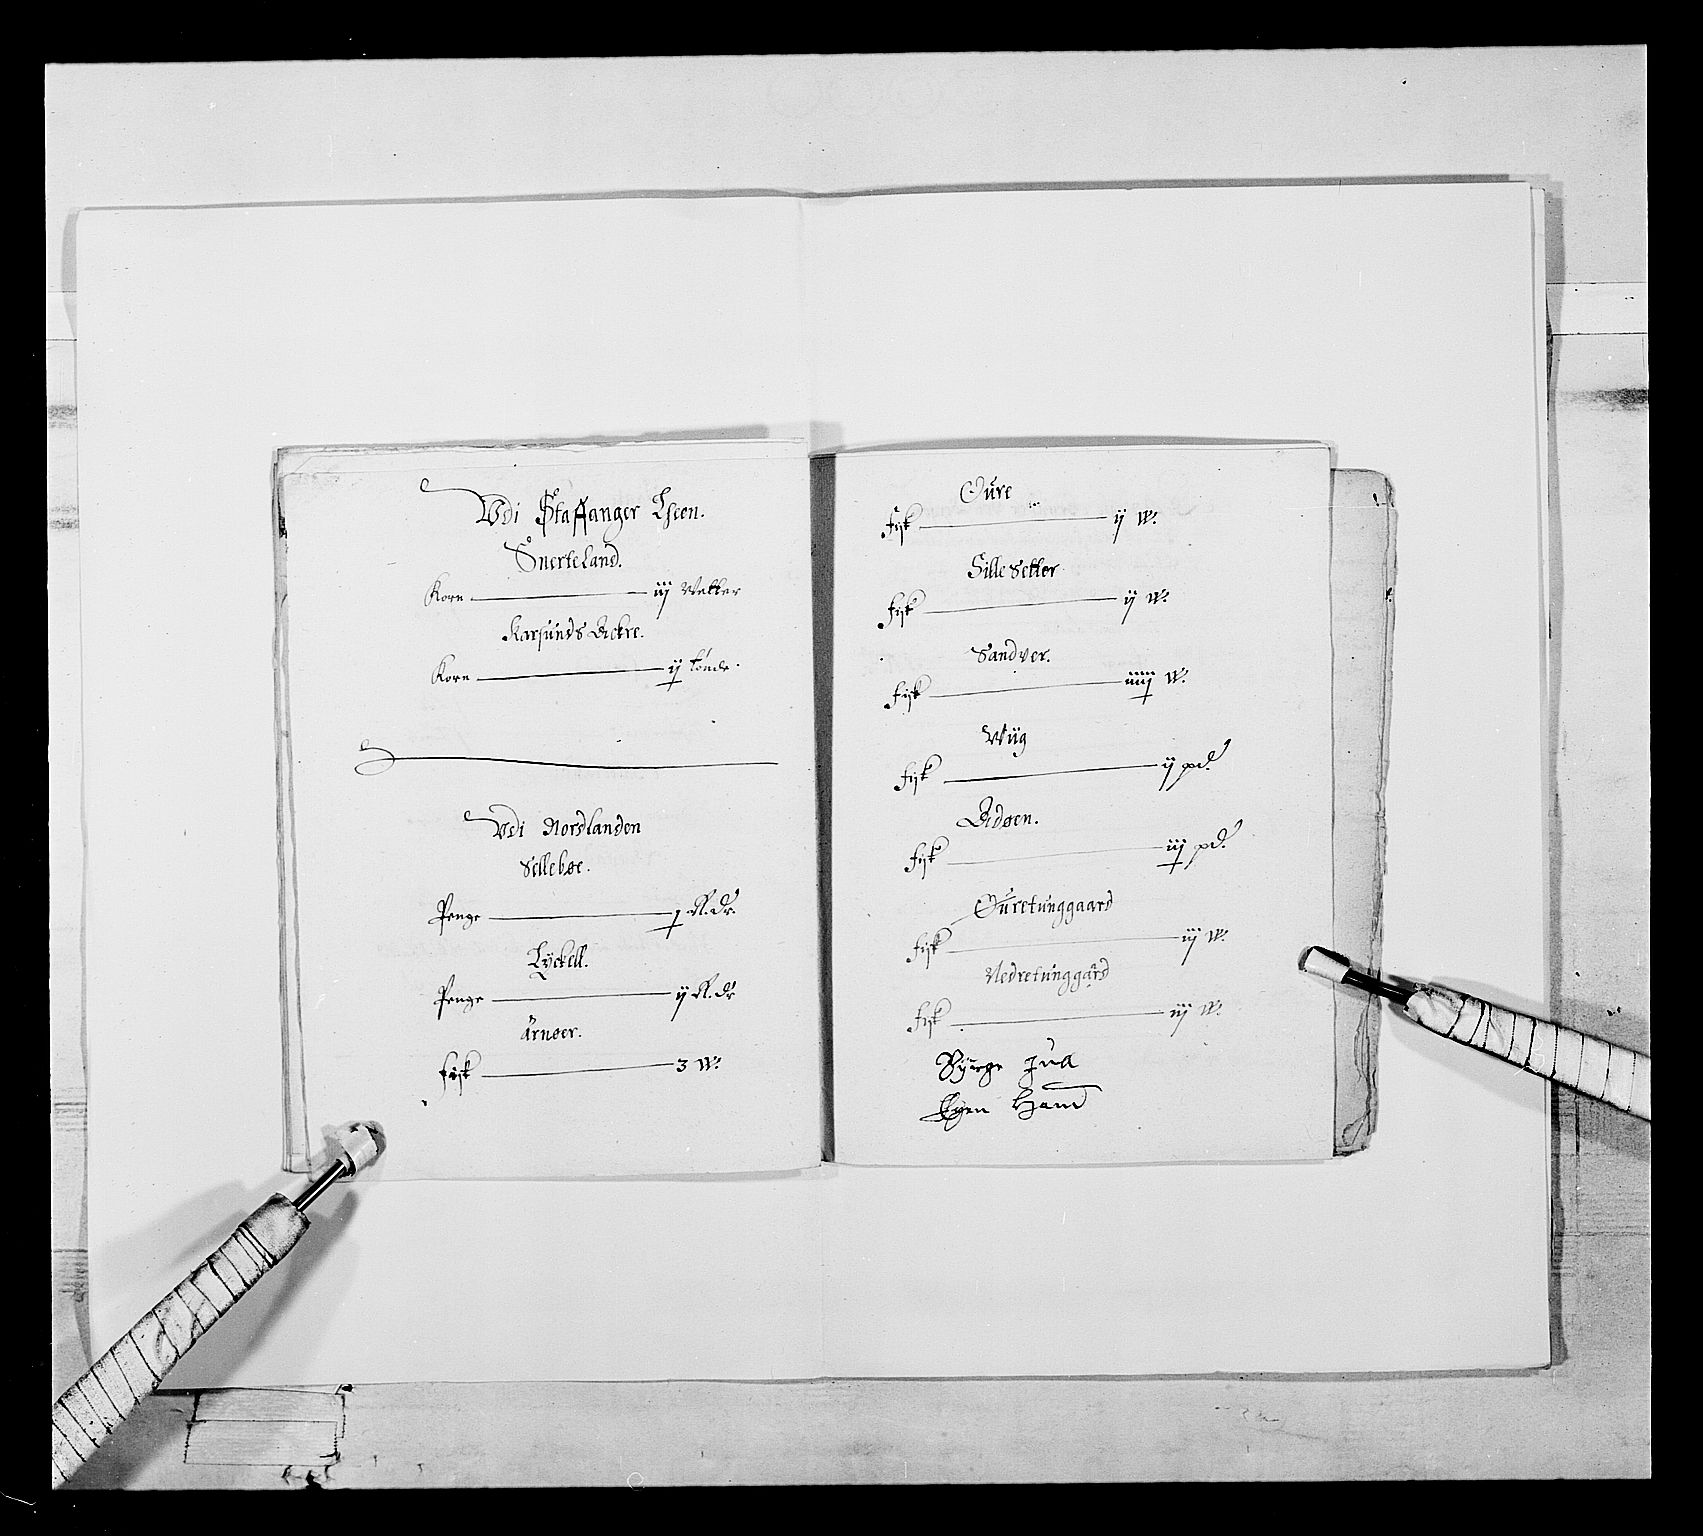 Vdi Staffanger Lheen.
Snerteland.
Korn — iij Vetter
Karsunds Ackre.
Korn — ij tønde.
Vdi Nordlanden
Sellebøe.
Penge — j Rl. Dr.
Lyckell.
Penge — ij Rl. dr
Arnøer.
Fisk — 3 W:
Øure
Fisk — ij W:
Sille Setter
Fisk — ij W:
Sandver.
Fisk — iiiij W:
Wiig
Fisk — ij pd:
Ådøen.
Fisk — iij pd:
Øuretunggaard
Fisk — iij W:
Nedretunggård
Fisk — iij W:
Byrge Juel
Egen Hand